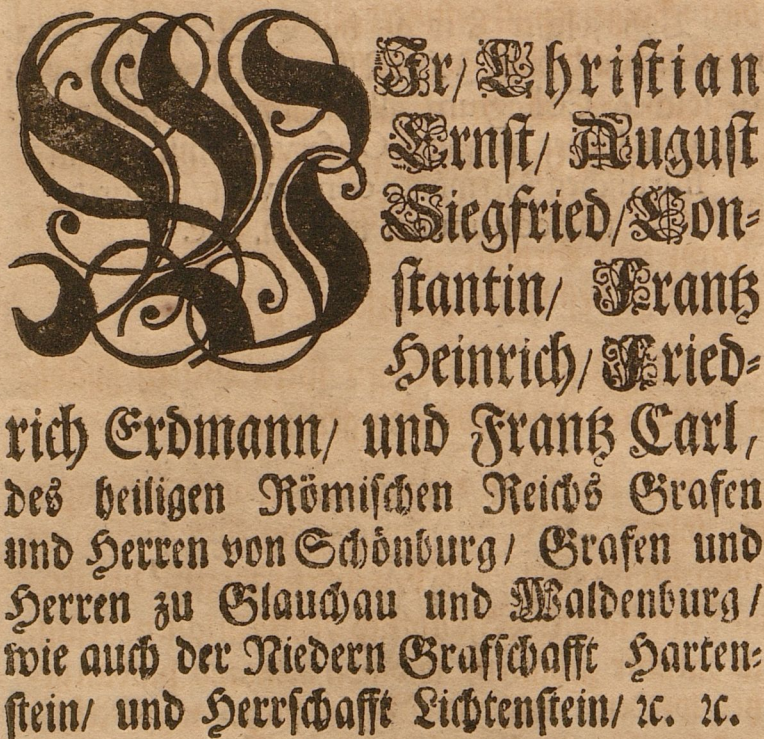 WIr/ Christian
Ernst/ August
Siegfried/ Con⸗
stantin/ Frantz
Heinrich/ Fried⸗
rich Erdmann/ und Frantz Carl,
des heiligen Römischen Reichs Grafen
und Herren von Schönburg/ Grafen und
Herren zu Glauchau und Waldenburg/
wie auch der Niedern Grafschafft Harten⸗
stein/ und Herrschafft Lichtenstein/ ꝛc. ꝛc.